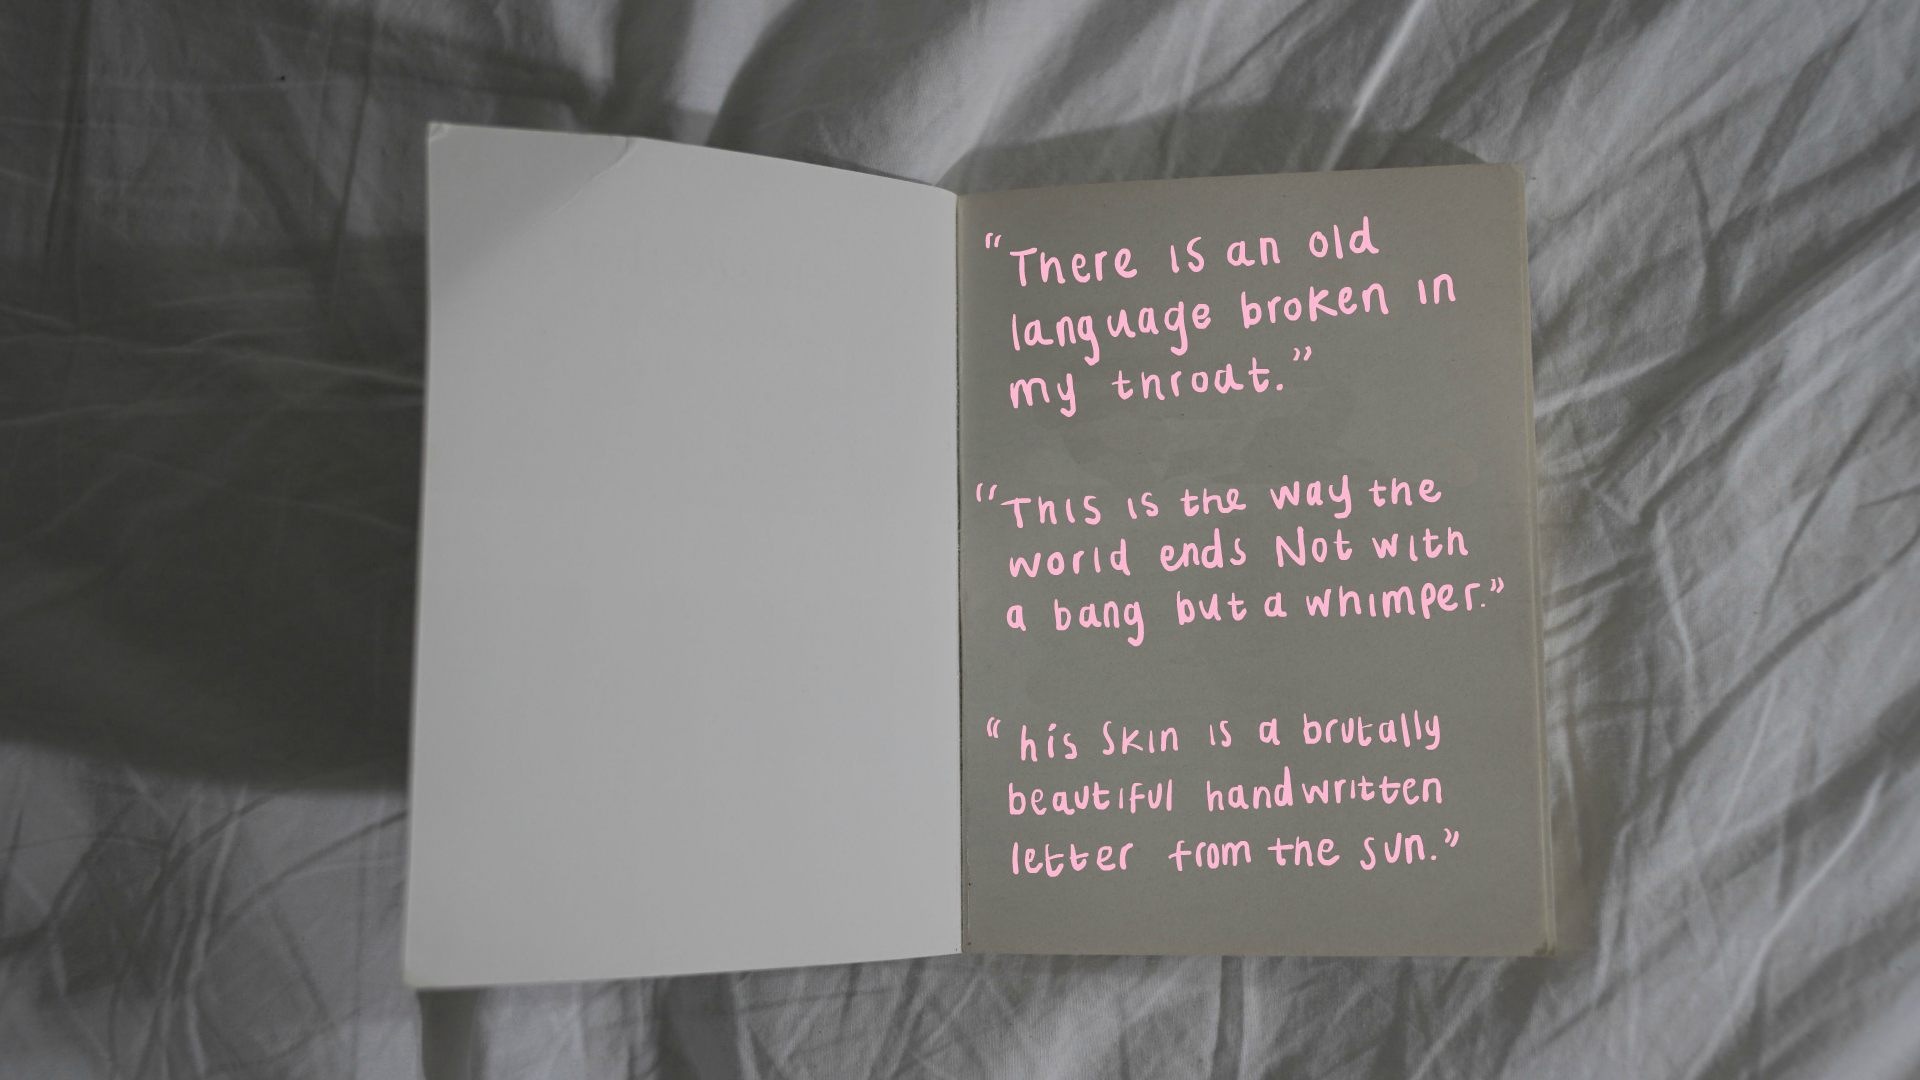 “There is an old
language broken in
my throat.”
“This is the way the
world ends Not with
a bang but a whimper.”
“his skin is a brutally
beautiful handwritten
letter from the sun.”